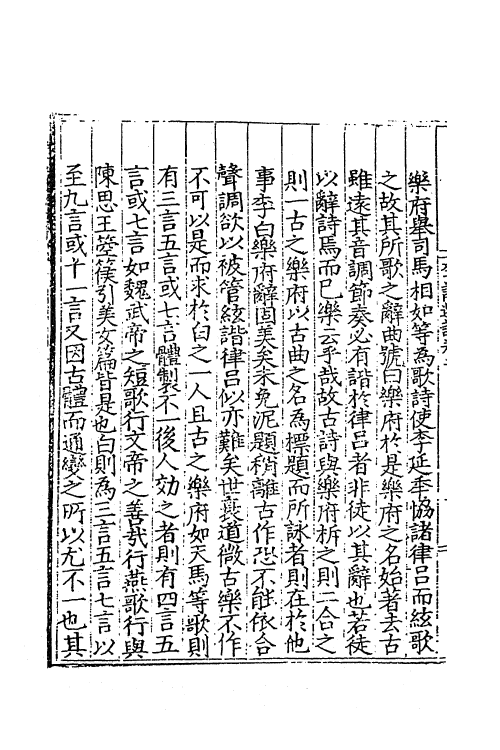 樂府舉司馬相如等為歌詩使李延年協諸律呂而絃歌
之故其所歌之辭曲號曰樂府於是樂府之名始著去古
雖遠其音調節奏必有諧於律呂者非徒以其辭也若徒
以辭詩焉而已樂云乎哉故古詩與樂府析之則二合之
則一古之樂府以古曲之名為標題而所詠者則在於他
事李白樂府辭固美矣未免泥題稍離古作恐不能依合
聲調欲以被管絃諧律呂似亦難矣世衰道微古樂不作
不可以是而求於白之一人且古之樂府如天馬等歌則
有三言五言或七言體製不一後人効之者則有四言五
言或七言如魏武帝之短歌行文帝之善哉行燕歌行與
陳思王箜篌引美女篇皆是也白則為三言五言七言以
至九言或十一言又因古體而通變之所以尤不一也其